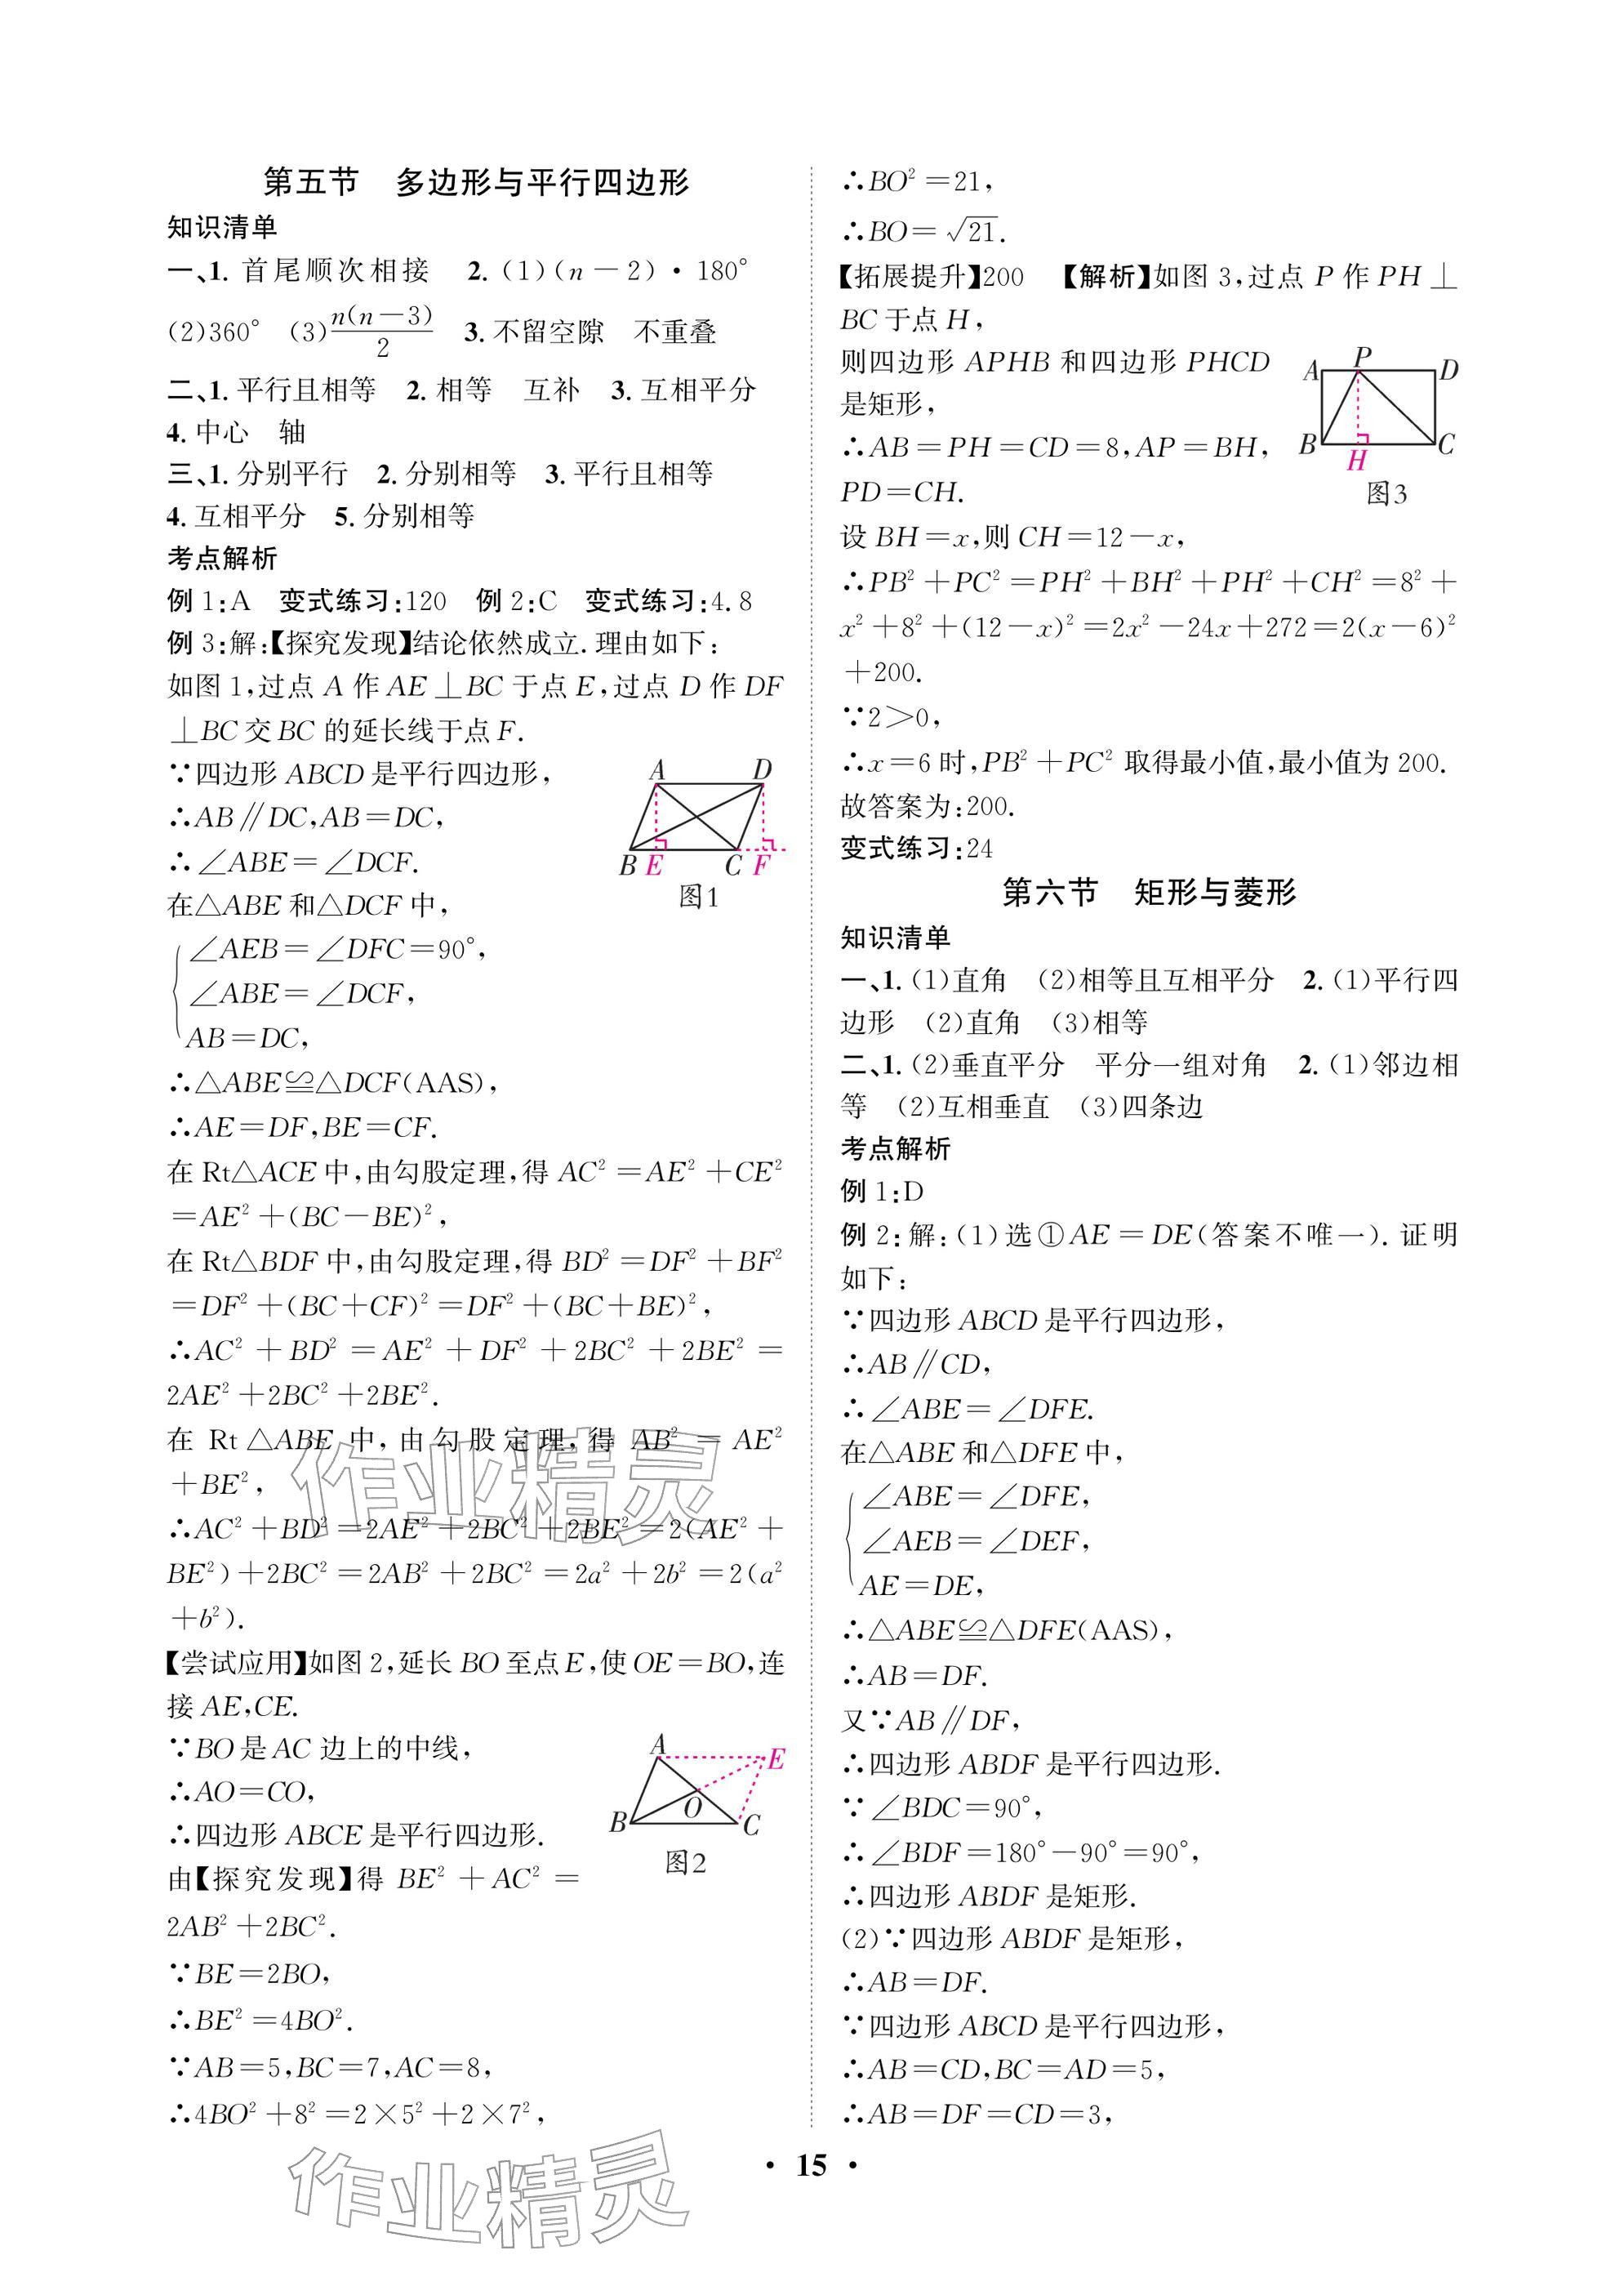 第五节　多边形与平行四边形
知识清单
一、1. 首尾顺次相接　2. (1)(n－2)·180°
(2)360°　(3)n(n－3)/2　3. 不留空隙　不重叠
二、1. 平行且相等　2. 相等　互补　3. 互相平分
4. 中心　轴
三、1. 分别平行　2. 分别相等　3. 平行且相等
4. 互相平分　5. 分别相等
考点解析
例 1:A　变式练习:120　例 2:C　变式练习:4.8
例 3:解:【探究发现】结论依然成立. 理由如下:
如图 1,过点 A 作 AE⊥BC 于点 E,过点 D 作 DF
⊥BC 交 BC 的延长线于点 F.
∵四边形 ABCD 是平行四边形,
∴AB∥DC,AB＝DC,
∴∠ABE＝∠DCF.
在△ABE 和△DCF 中,
∠AEB＝∠DFC＝90°,
∠ABE＝∠DCF,
AB＝DC,
A D B E C F
图1
∴△ABE≌△DCF(AAS),
∴AE＝DF,BE＝CF.
在 Rt△ACE 中,由勾股定理,得 AC²＝AE²＋CE²
＝AE²＋(BC－BE)²,
在 Rt△BDF 中,由勾股定理,得 BD²＝DF²＋BF²
＝DF²＋(BC＋CF)²＝DF²＋(BC＋BE)²,
∴AC²＋BD²＝AE²＋DF²＋2BC²＋2BE²＝
2AE²＋2BC²＋2BE².
在 Rt△ABE 中,由勾股定理,得 AB²＝AE²
＋BE²,
∴AC²＋BD²＝2AE²＋2BC²＋2BE²＝2(AE²＋
BE²)＋2BC²＝2AB²＋2BC²＝2a²＋2b²＝2(a²
＋b²).
【尝试应用】如图 2,延长 BO 至点 E,使 OE＝BO,连
接 AE,CE.
∵BO 是 AC 边上的中线,
∴AO＝CO,
∴四边形 ABCE 是平行四边形.
由【探究发现】得 BE²＋AC²＝
2AB²＋2BC².
A E B O C
图2
∵BE＝2BO,
∴BE²＝4BO².
∵AB＝5,BC＝7,AC＝8,
∴4BO²＋8²＝2×5²＋2×7²,
∴BO²＝21,
∴BO＝√21.
【拓展提升】200　【解析】如图 3,过点 P 作 PH⊥
BC 于点 H,
则四边形 APHB 和四边形 PHCD
是矩形,
∴AB＝PH＝CD＝8,AP＝BH,
PD＝CH.
A P D B H C
图3
设 BH＝x,则 CH＝12－x,
∴PB²＋PC²＝PH²＋BH²＋PH²＋CH²＝8²＋
x²＋8²＋(12－x)²＝2x²－24x＋272＝2(x－6)²
＋200.
∵2＞0,
∴x＝6 时,PB²＋PC² 取得最小值,最小值为 200.
故答案为:200.
变式练习:24
第六节　矩形与菱形
知识清单
一、1. (1)直角　(2)相等且互相平分　2. (1)平行四
边形　(2)直角　(3)相等
二、1. (2)垂直平分　平分一组对角　2. (1)邻边相
等　(2)互相垂直　(3)四条边
考点解析
例 1:D
例 2:解:(1)选①AE＝DE(答案不唯一). 证明
如下:
∵四边形 ABCD 是平行四边形,
∴AB∥CD,
∴∠ABE＝∠DFE.
在△ABE 和△DFE 中,
∠ABE＝∠DFE,
∠AEB＝∠DEF,
AE＝DE,
∴△ABE≌△DFE(AAS),
∴AB＝DF.
又∵AB∥DF,
∴四边形 ABDF 是平行四边形.
∵∠BDC＝90°,
∴∠BDF＝180°－90°＝90°,
∴四边形 ABDF 是矩形.
(2)∵四边形 ABDF 是矩形,
∴AB＝DF.
∵四边形 ABCD 是平行四边形,
∴AB＝CD,BC＝AD＝5,
∴AB＝DF＝CD＝3,
· 15 ·
作业精灵
作业精灵